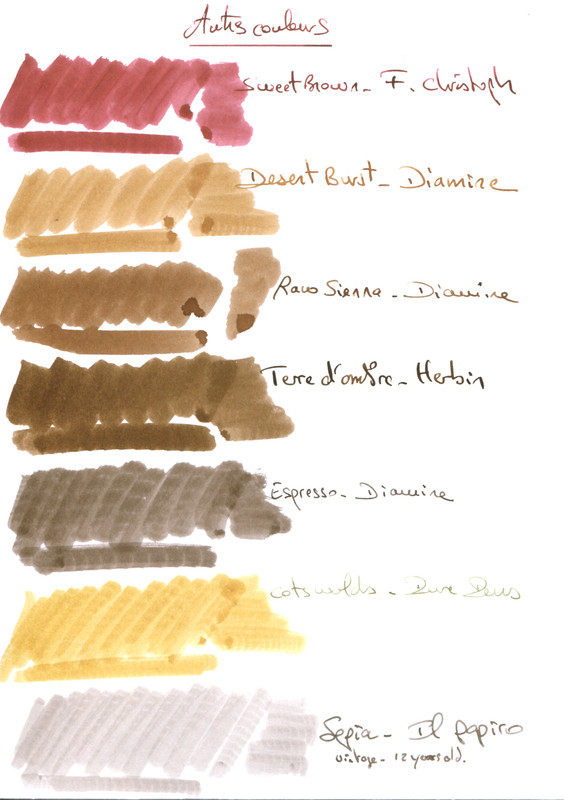 Autres couleurs
Sweet Brown - F. Christoph
Desert Burst - Diamine
Raw Sienna - Diamine
Terre d'ombre - Herbin
Espresso - Diamine
Cotswolds - Pure Pens
Sepia - Il papiro
vintage - 12 years old.